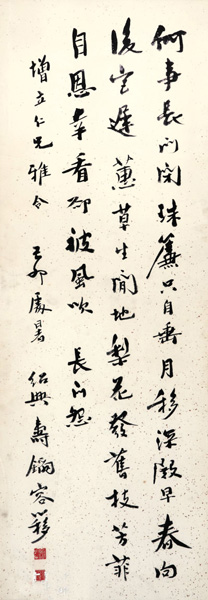 何事長門閉珠簾只自垂月移深殿早春向
後宮遲蕙草生閒地梨花發舊枝芳菲
自恩幸看却被風吹 長門怨
增立仁兄雅令 己卯處暑 紹興壽